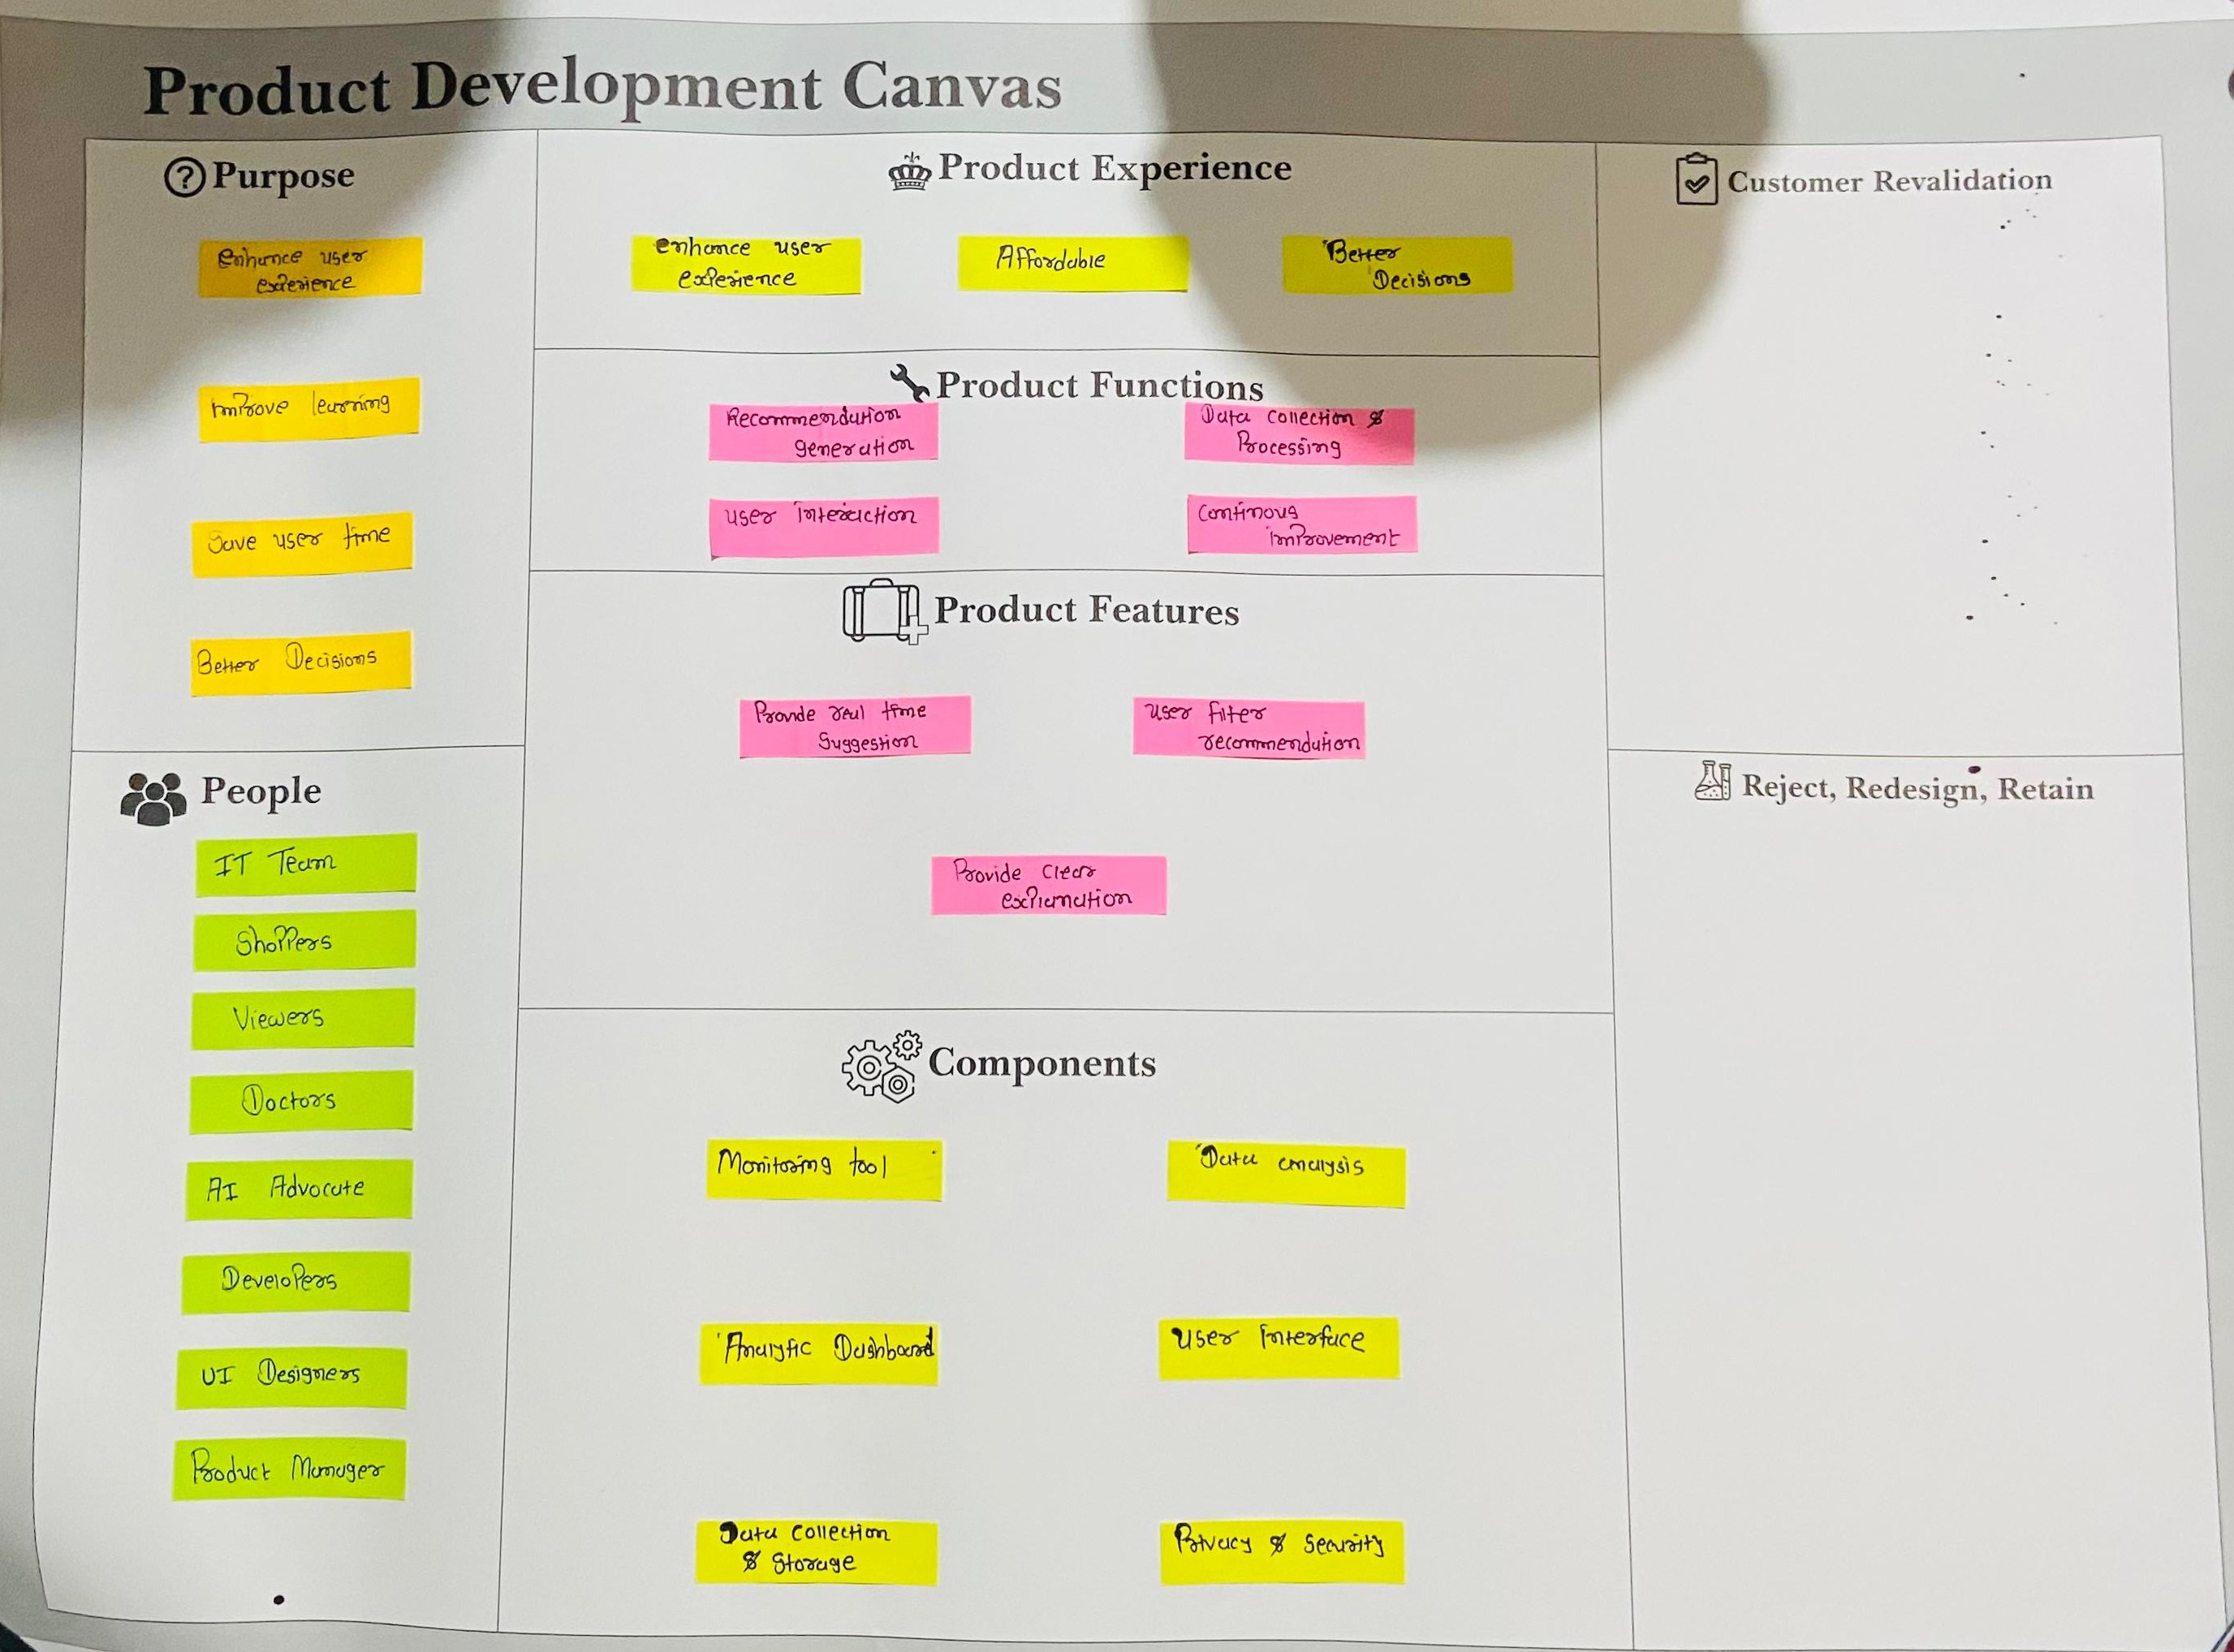 Product Development Canvas
Purpose
Enhance user
experience
Improve learning
Save user time
Better Decisions
People
IT Team
Shoppers
Viewers
Doctors
AI Advocate
Developers
UI Designers
Product Manager
Product Experience
enhance user
experience
Affordable
Better
Decisions
Product Functions
Recommendation
generation
Data collection &
Processing
user interaction
Continous
improvement
Product Features
Provide real time
Suggestion
user filter
recommendation
Provide clear
explanation
Components
Monitoring tool
Data analysis
Analytic Dashboard
User Interface
Data Collection
& Storage
Privacy & Security
Customer Revalidation
Reject, Redesign, Retain